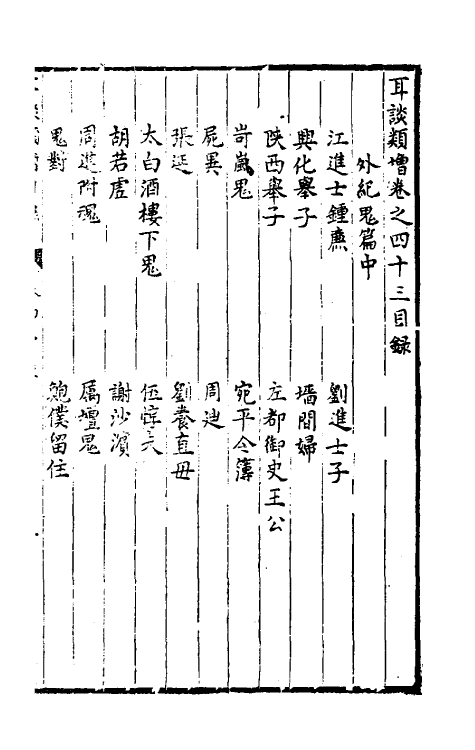 耳談類增卷之四十三目錄
外紀鬼篇中
江進士鍾廉 劉進士子
興化舉子 墻間婦
陝西舉子 左都御史王公
岢嵐鬼 宛平令簿
屍異 周迪
張延 劉養直毋
太白酒樓下鬼 伍惇夫
胡若虛 謝沙濱
周進附魂 厲壇鬼
鬼對 鮑僕留住